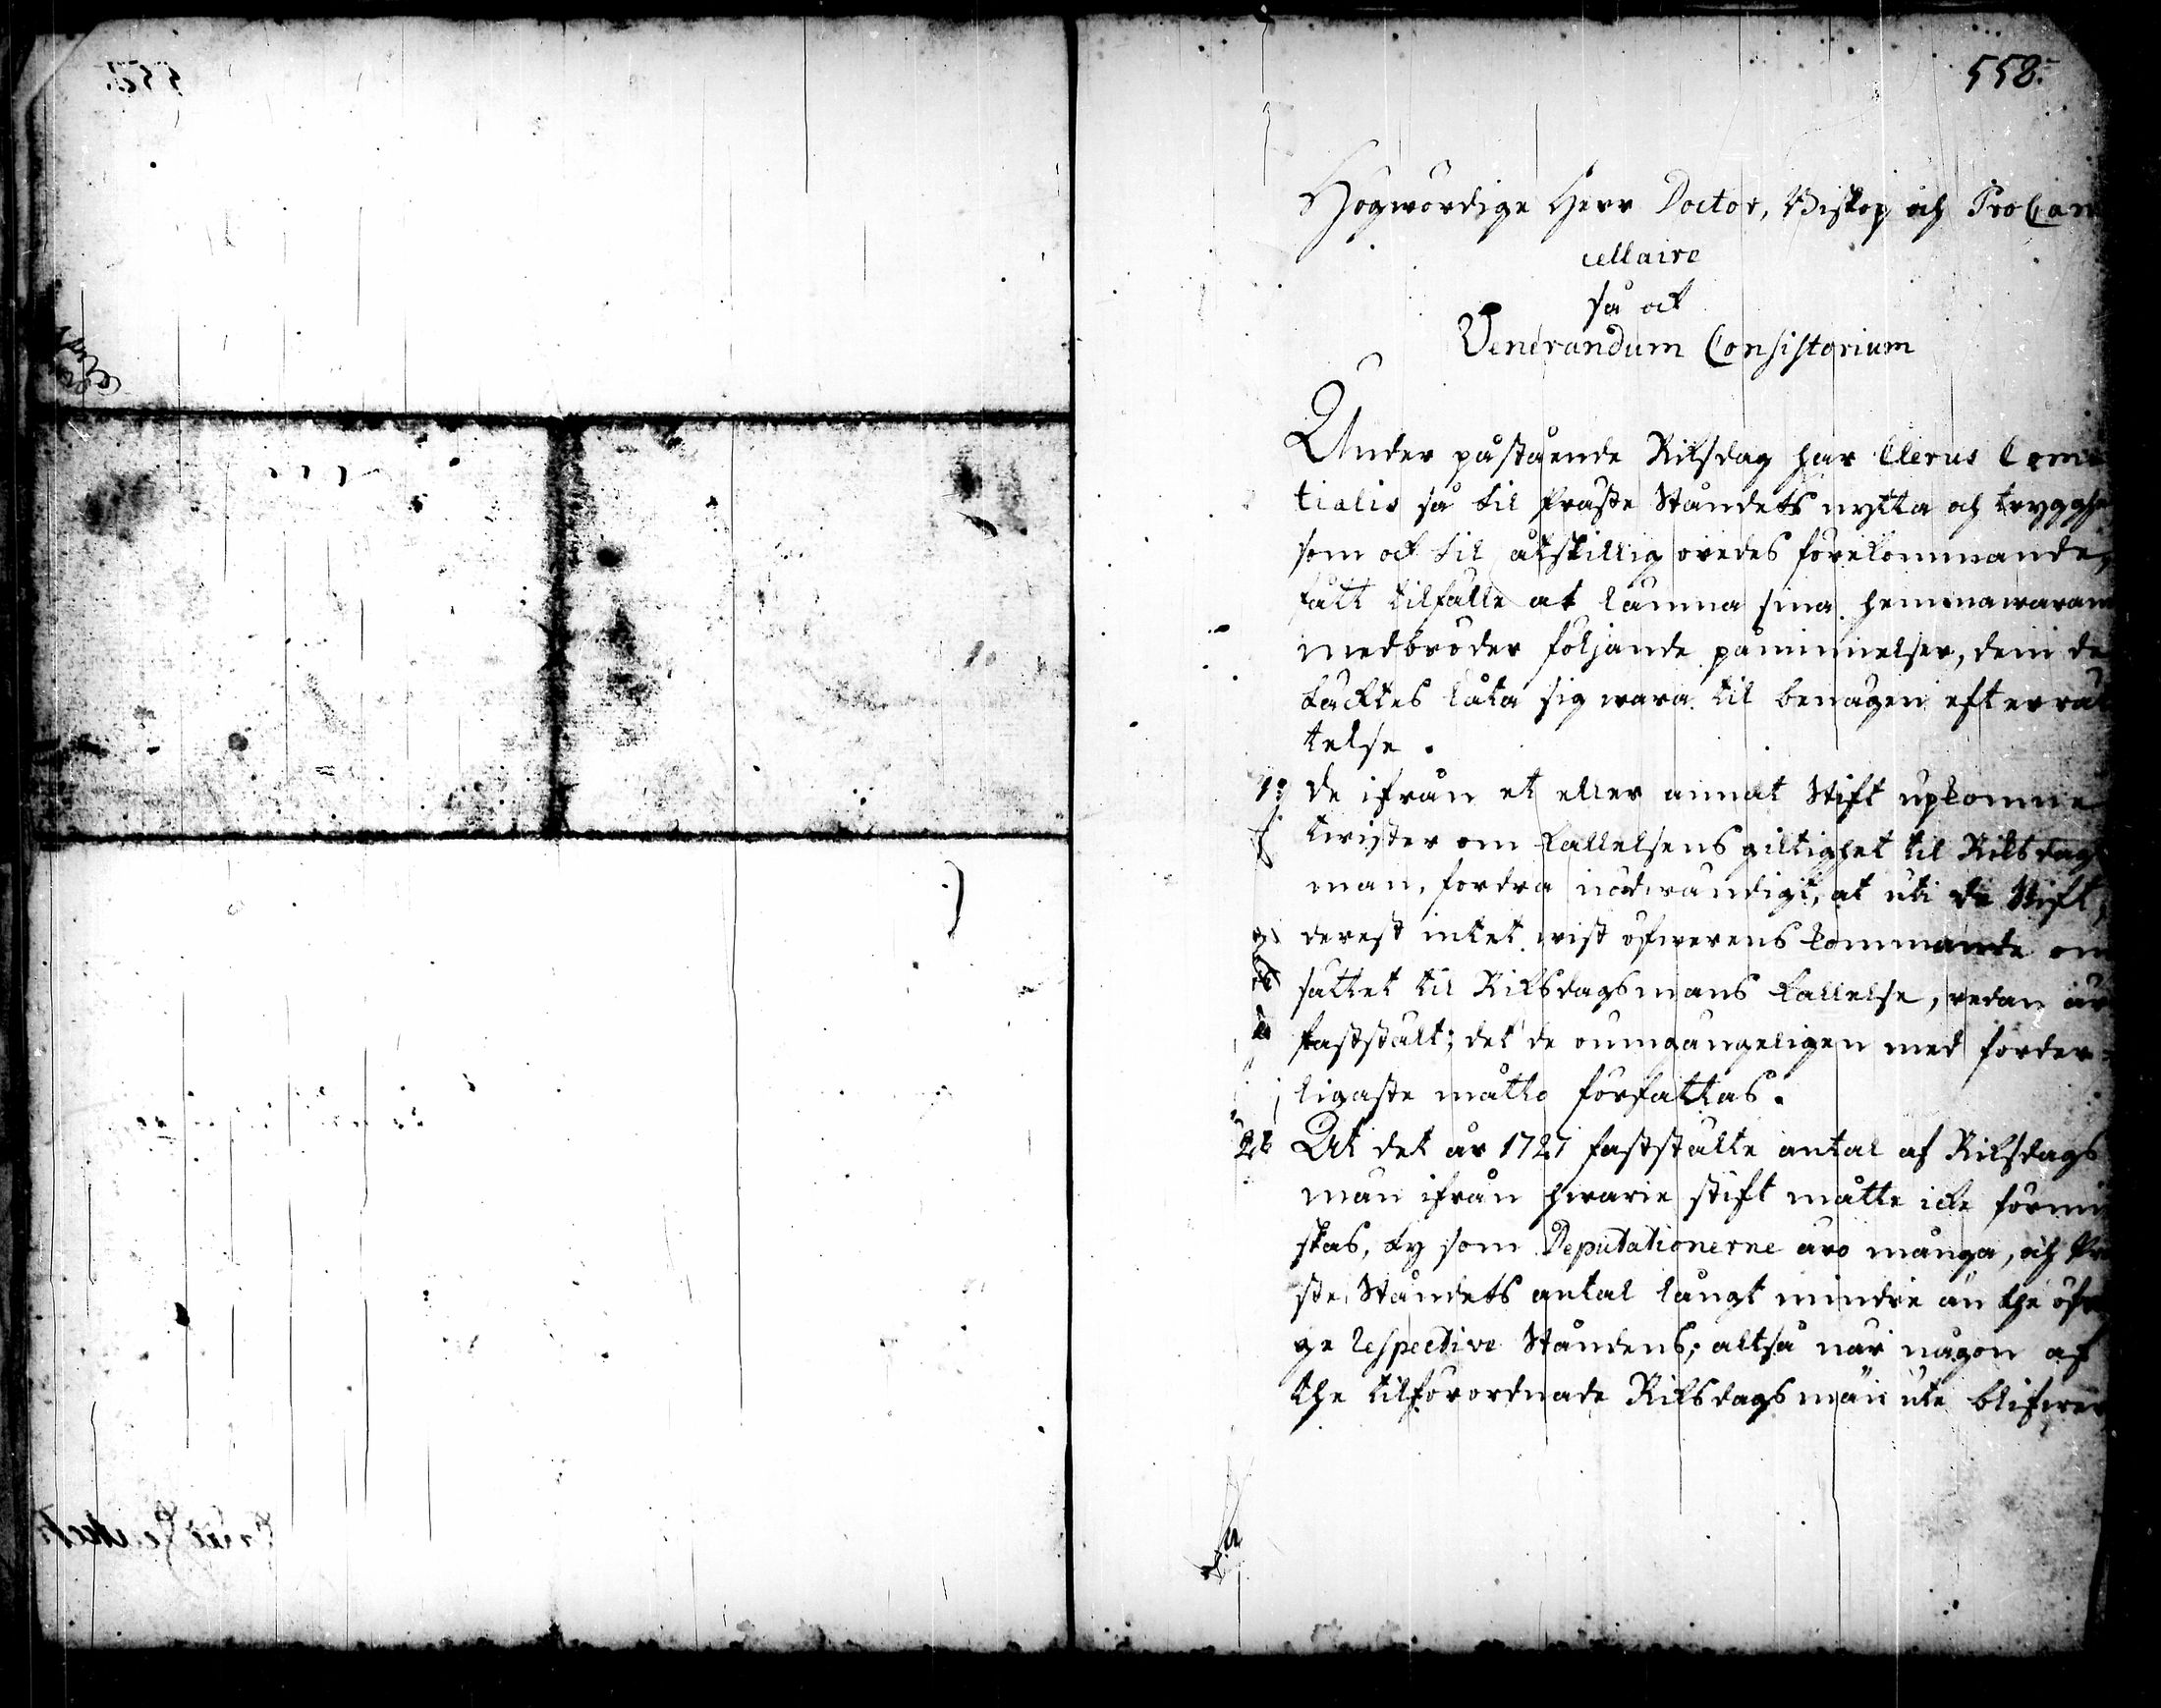 558.
Högwördige Herr Doctor, Biskop och ProCan
cellaire
så ock
Venerandum Consistorium
Under påstående Riksdag har Clerus Comi
tialis så til Präste Ståndets nytta och tryggh
som ock til åtskillig oredes förekommande,
fått tilfälle at lämna sina hemmawaran
medbröder följande påminnelser, dem de
täcktes låta sig wara til benägen efterrät
telse.
1: De ifrån et eller annat Stift upkomne
twister om kallelsens giltighet til Riksdags
man, fordra nödwändigt, at uti de Stift,
derest intet wist öfwerens kommande om
sättet til Riksdagsmans kallelse, redan är
faststält; det de oumgängeligen med forder-
ligaste måtto författas.
2: At det år 1727 fastställte antal af Riksdags
män ifrån hwarie stift måtte icke förmin
skas, ty som Deputationerne äro många, och Prä
ste Ståndets antal långt mindre än the öfri
ge respective Ståndens; altså när någon af
the tilförordnade Riksdagsmän ute blifwer